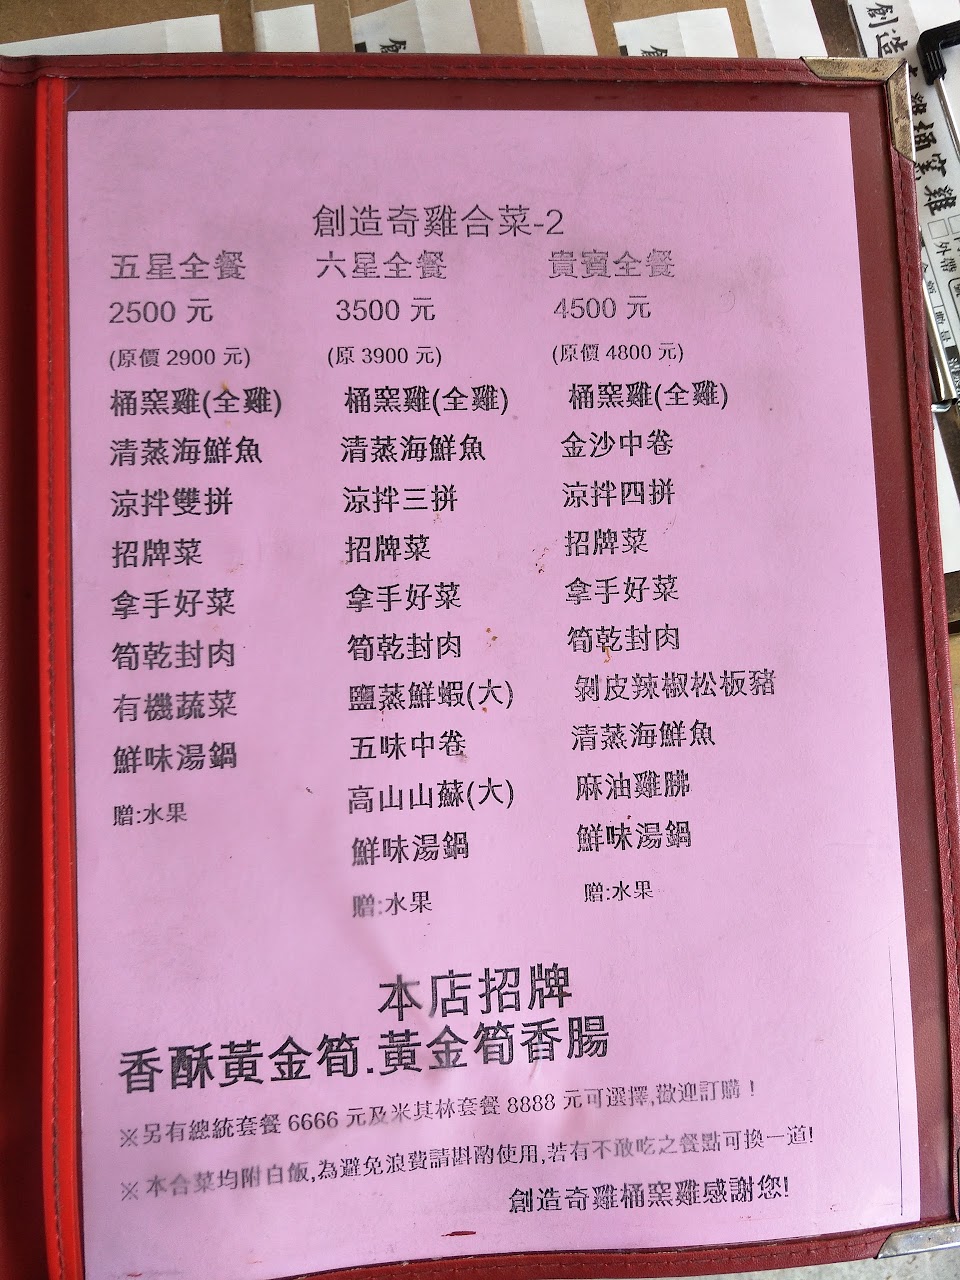 創造奇雞合菜-2
五星全餐 六星全餐 貴賓全餐
2500 元 3500 元 4500 元
(原價 2900 元) (原 3900 元) (原價 4800 元)
桶窯雞(全雞) 桶窯雞(全雞) 桶窯雞(全雞)
清蒸海鮮魚 清蒸海鮮魚 金沙中卷
涼拌雙拼 涼拌三拼 涼拌四拼
招牌菜 招牌菜 招牌菜
拿手好菜 拿手好菜 拿手好菜
筍乾封肉 筍乾封肉 筍乾封肉
有機蔬菜 鹽蒸鮮蝦(大) 剝皮辣椒松板豬
鮮味湯鍋 五味中卷 清蒸海鮮魚
贈:水果 高山山蘇(大) 麻油雞胇
鮮味湯鍋 鮮味湯鍋
贈:水果 贈:水果
本店招牌
香酥黃金筍.黃金筍香腸
※另有總統套餐 6666 元及米其林套餐 8888 元可選擇,歡迎訂購！
※本合菜均附白飯,為避免浪費請斟酌使用,若有不敢吃之餐點可換一道!
創造奇雞桶窯雞感謝您!
創造
雞桶窯雞
外帶